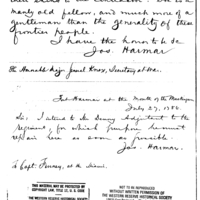 many old fellow, and much more of a
gentleman than the generality of these
frontier people.
I have the honor to be
Jos. Harmar
The Honorable Major General Knox, Secretary at War.
Fort Harmar at the mouth of the Muskingum
July 2
Sir: I intend to
Denny Adjutant to the
Regiment, for which purpose he must
repair here as soon as possible
Jos. Harmar.
To Capt. Finney, at the Miami.
THIS MATERIAL MAY BE PROTECTED BY
COPYRIGHT LAW, TITLE 17, U. S. CODE
THE WESTERN RESERVE HISTORICAL SOCIETY
NOT TO BE REPRODUCED
WITHOUT WRITTEN PERMISSION OF
THE WESTERN RESERVE HISTORICAL SOCIETY